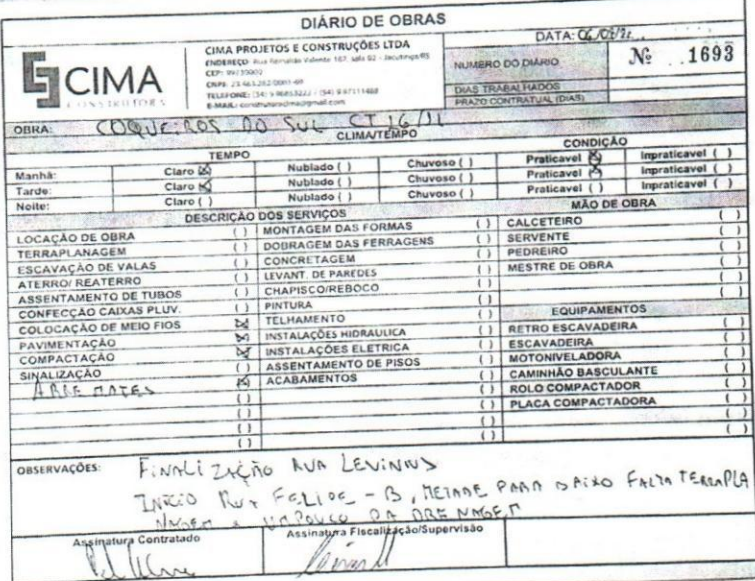 DIÁRIO DE OBRAS
CIMA
CONSTRUTORA
CIMA PROJETOS E CONSTRUÇÕES LTDA
ENDEREÇO: Rua Reinaldo Valente 167, sala 02 - Jacutinga/RS
CEP: 99730000
CNPJ:
TELEFONE: (54) 9 96853222 / (54) 9 97111488
E-MAIL: construtoracima@gmail.com
DATA:
NUMERO DO DIÁRIO
Nº 1693
DIAS TRABALHADOS
PRAZO CONTRATUAL (DIAS)
OBRA: COQUEIROS DO SUL CT 16/21
CLIMA/TEMPO
TEMPO CONDIÇÃO
Manhã: Claro (X) Nublado ( ) Chuvoso ( ) Praticavel (X) Inpraticavel ( )
Tarde: Claro (X) Nublado ( ) Chuvoso ( ) Praticavel (X) Inpraticavel ( )
Noite: Claro ( ) Nublado ( ) Chuvoso ( ) Praticavel ( ) Inpraticavel ( )
DESCRIÇÃO DOS SERVIÇOS MÃO DE OBRA
LOCAÇÃO DE OBRA ( ) MONTAGEM DAS FORMAS ( ) CALCETEIRO ( )
TERRAPLANAGEM ( ) DOBRAGEM DAS FERRAGENS ( ) SERVENTE ( )
ESCAVAÇÃO DE VALAS ( ) CONCRETAGEM ( ) PEDREIRO ( )
ATERRO/ REATERRO ( ) LEVANT. DE PAREDES ( ) MESTRE DE OBRA ( )
ASSENTAMENTO DE TUBOS ( ) CHAPISCO/REBOCO ( ) ( )
CONFECÇÃO CAIXAS PLUV. ( ) PINTURA ( ) ( )
COLOCAÇÃO DE MEIO FIOS (X) TELHAMENTO ( ) EQUIPAMENTOS
PAVIMENTAÇÃO (X) INSTALAÇÕES HIDRAULICA ( ) RETRO ESCAVADEIRA ( )
COMPACTAÇÃO (X) INSTALAÇÕES ELETRICA ( ) ESCAVADEIRA ( )
SINALIZAÇÃO ( ) ASSENTAMENTO DE PISOS ( ) MOTONIVELADORA ( )
ARREMATES (X) ACABAMENTOS ( ) CAMINHÃO BASCULANTE ( )
( ) ( ) ROLO COMPACTADOR ( )
( ) ( ) PLACA COMPACTADORA ( )
( ) ( ) ( )
( ) ( ) ( )
OBSERVAÇÕES: FINALIZAÇÃO RUA LEVINUS
INÍCIO RUA FELIPE - B, METADE PARA BAIXO FALTA TERRAPLA
NAGEM E UM POUCO DA DRENAGEM
Assinatura Contratado
Assinatura Fiscalização/Supervisão